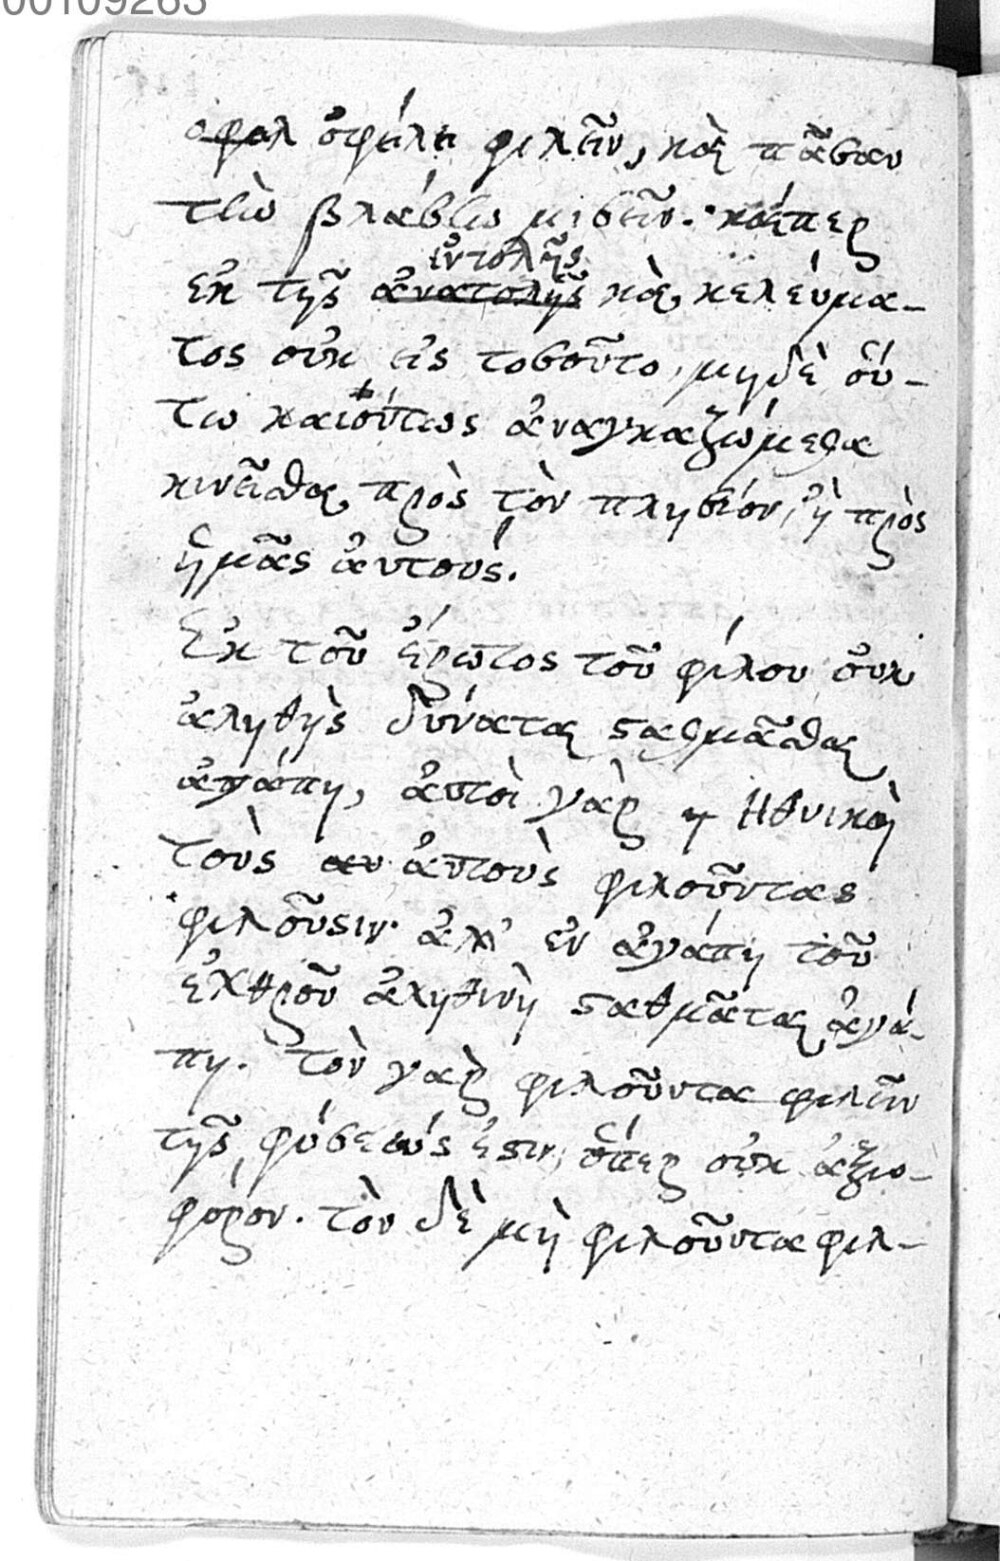 00109263
ὀφελ ὀφείλει φιλεῖν, καὶ πᾶσαν
τὴν βλάβην μισεῖν. καίπερ
ἐντολῆς
ἐκ τῆς ἀνατολῆς καὶ κελεύμα-
τος οὐκ εἰς τοσοῦτο, μηδὲ οὕ-
τω καὶ οὕτως ἀναγκαζώμεθα
κινεῖσθαι πρὸς τὸν πλησίον, ἢ πρὸς
ἡμᾶς ἀυτούς.
Ἐκ τοῦ ἔρωτος τοῦ φίλου οὐκ
ἀληθὴς δύναται σταθμᾶσθαι
ἀγάπη, ἀυτοὶ γὰρ Ηθνικοὶ
τοὺς αυ ἀυτοὺς φιλοῦντας
φιλοῦσιν. ἀλλ' ἐν ἀγάπη τοῦ
ἐχθροῦ ἀληθινὴ σταθμᾶται ἀγά-
πη. Τὸν γὰρ φιλοῦντα φιλεῖν
τῆς φύσεώς ἐστιν, ὅπερ οὐκ ἀξιο-
φορον. τὸν δὲ μὴ φιλοῦντα φιλ-